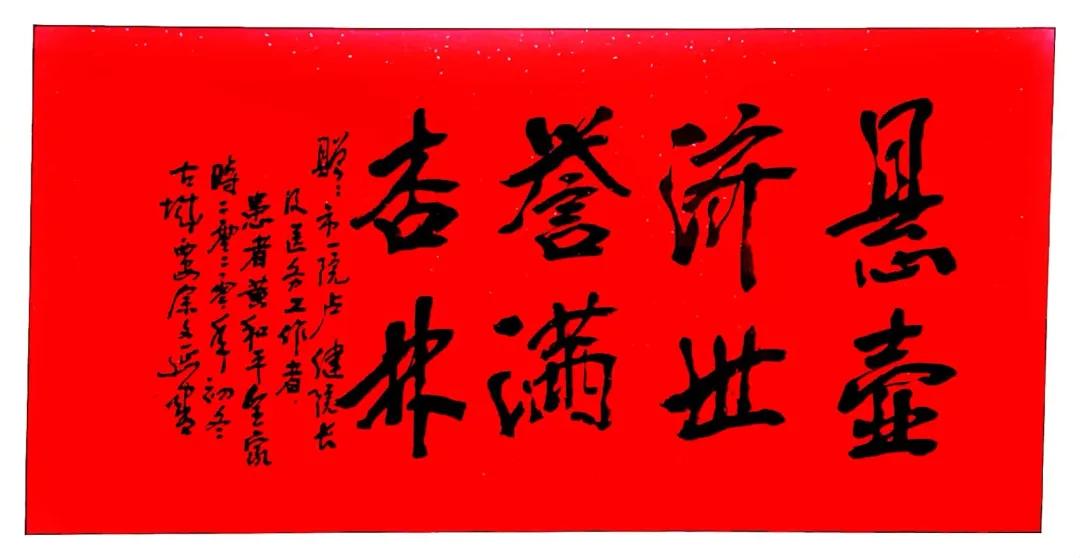 悬壶
济世
誉满
杏林
赠：市一院占健院长
及医务工作者
患者黄和平全家
時二零二零年初冬
古城